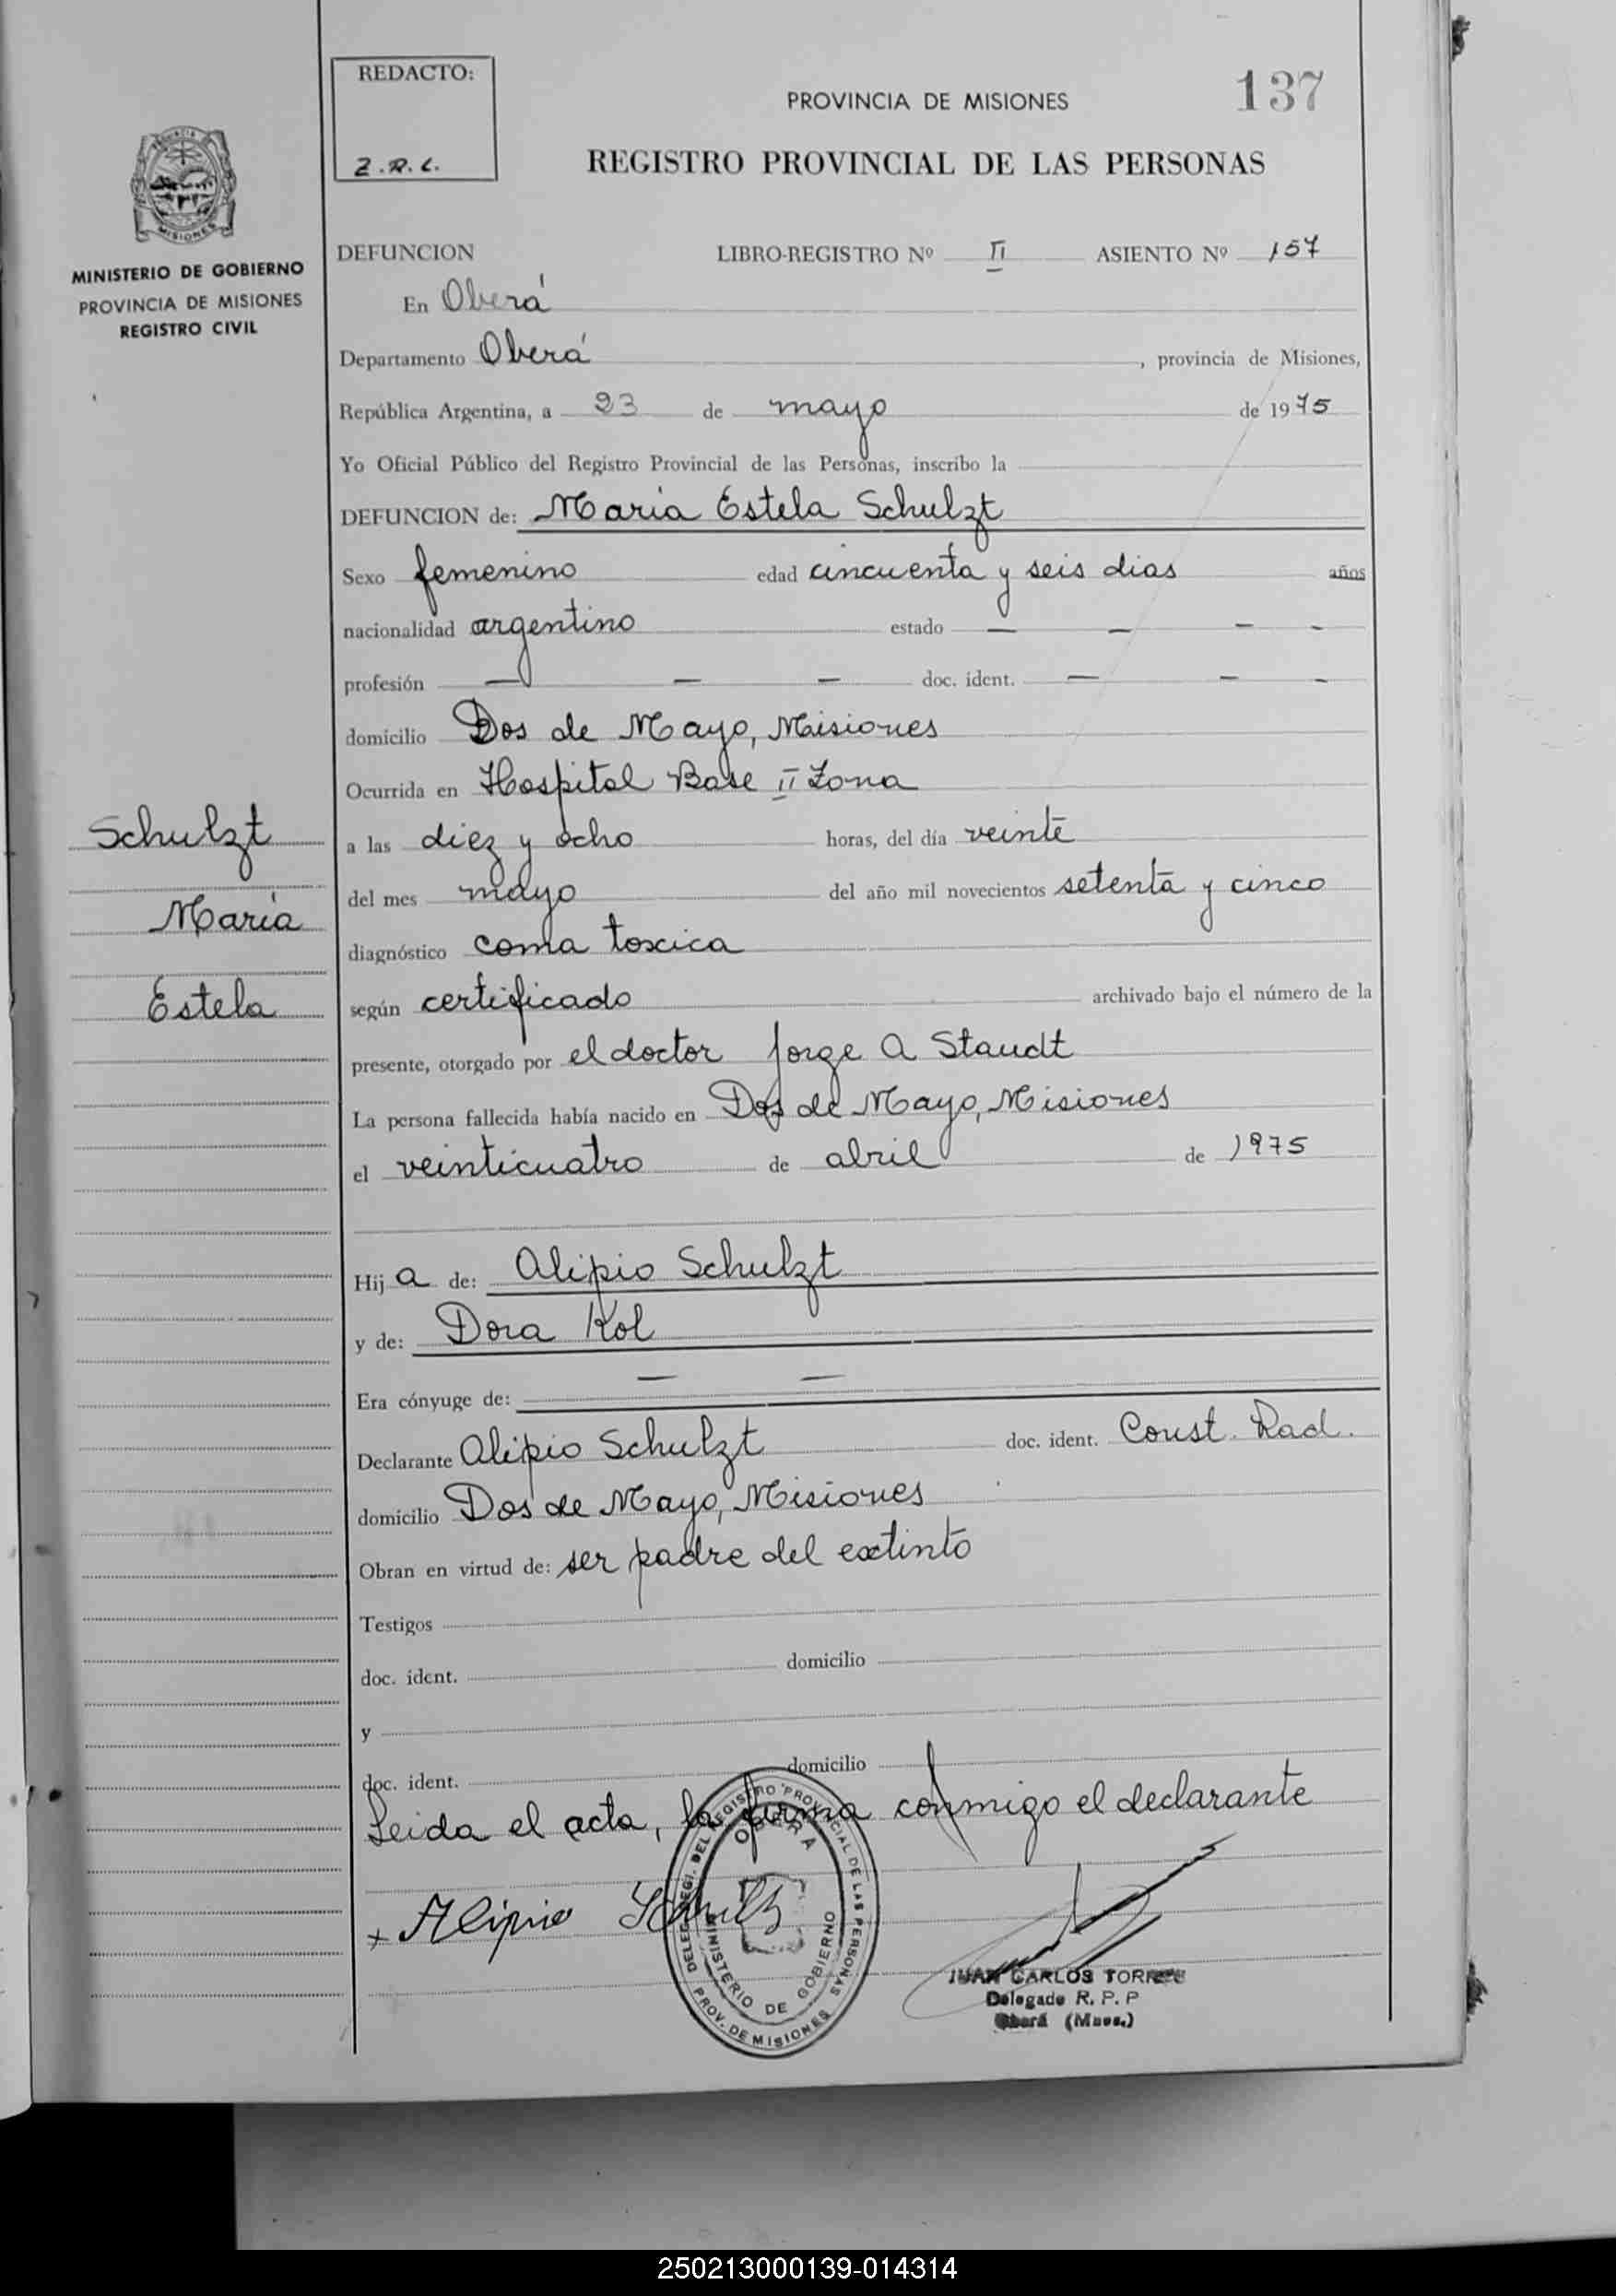 REDACTO:
Z.R.L.
PROVINCIA DE MISIONES
137
REGISTRO PROVINCIAL DE LAS PERSONAS
MISIONES
MINISTERIO DE GOBIERNO
PROVINCIA DE MISIONES
REGISTRO CIVIL
DEFUNCION LIBRO-REGISTRO Nº II ASIENTO Nº 157
En Oberá
Departamento Oberá, provincia de Misiones,
República Argentina, a 23 de mayo de 1975
Yo Oficial Público del Registro Provincial de las Personas, inscribo la
DEFUNCION de: María Estela Schulzt
Sexo femenino edad cincuenta y seis dias años
nacionalidad argentino estado — — — -
profesión — — — doc. ident. — — -
domicilio Dos de Mayo, Misiones
Ocurrida en Hospital Base II Zona
a las diez y ocho horas, del día veinte
del mes mayo del año mil novecientos setenta y cinco
diagnóstico coma toxica
según certificado archivado bajo el número de la
presente, otorgado por el doctor Jorge A Staudt
La persona fallecida había nacido en Dos de Mayo, Misiones
el veinticuatro de abril de 1975
Hija de: Alipio Schulzt
y de: Dora Kol
Era cónyuge de: — —
Declarante Alipio Schulzt doc. ident. Const. Rad.
domicilio Dos de Mayo, Misiones
Obran en virtud de: ser padre del extinto
Testigos
doc. ident. domicilio
y
doc. ident. domicilio
Leida el acta, la firma conmigo el declarante
Schulzt
María
Estela
+ Alipio Schulz
DELEG. REGI. DEL REGISTRO PROVINCIAL DE LAS PERSONAS
OBERA
MINISTERIO DE GOBIERNO
PROV. DE MISIONES
JUAN CARLOS TORRES
Delegado R. P. P
Oberá (Mnes.)
250213000139-014314